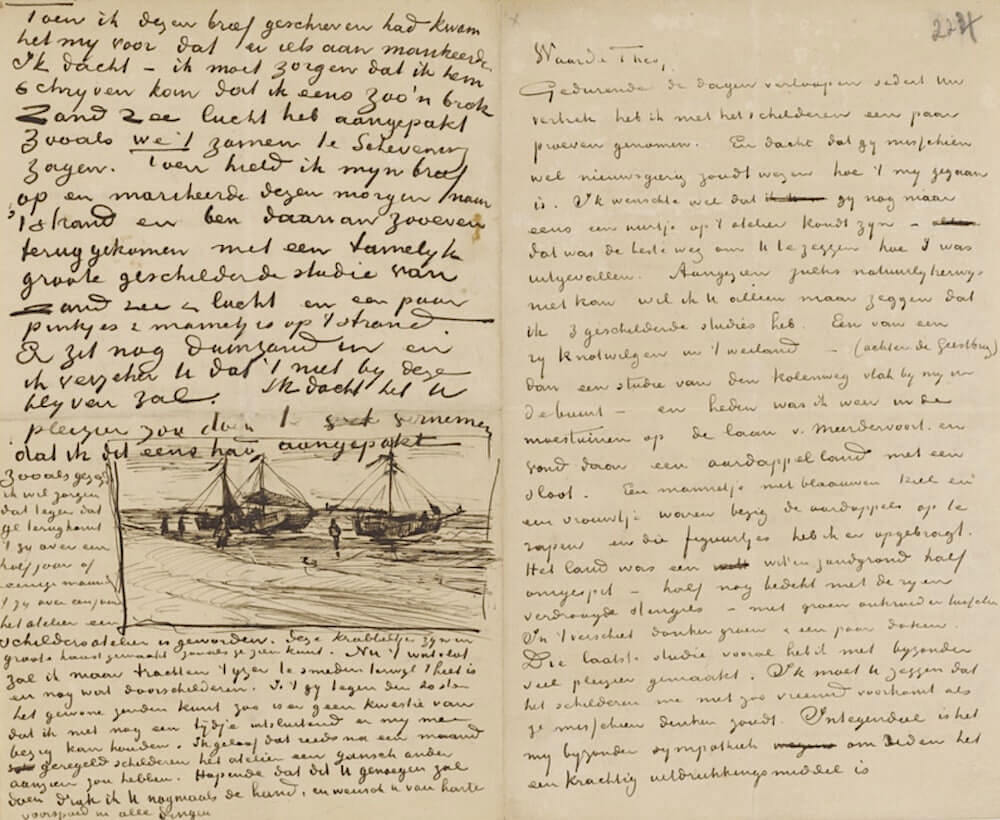 Toen ik dezen brief geschreven had kwam
het my voor dat er iets aan mankeerde
Ik dacht – ik moet zorgen dat ik hem
schryven kan dat ik eens zoo'n brok
Zand Zee lucht heb aangepakt
zooals we't zamen te Schevening
zagen. Toen hield ik myn brief
op en marcheerde dezen morgen naar
't strand en ben daarvan zooeven
teruggekomen met een tamelyk
groote geschilderde studie van
Zand zee & lucht en een paar
pinkjes & mannetjes op 't strand.
Er zit nog duinzand in en
ik verzeker U dat 't niet by deze
blyven zal. Ik dacht het U
plezier zou doen te vernemen
dat ik dit eens had aangepakt
Zooals gezegd
ik wil zorgen
dat tegen dat
gy terugkomt
't zy over een
half jaar of
eenige maand
't zy over een jaar
het atelier een
schildersatelier is geworden. Deze krabbeltjes zyn in
groote haast gemaakt zooals ge zien kunt. Nu 't vlot
zal ik maar trachten 't yzer te smeden terwyl 't heet is
en nog wat doorschilderen. Als gy tegen den 20sten
het gewone zenden kunt zoo is er geen kwestie van
dat ik niet nog een tydje uitsluitend er my mee
bezig kan houden. Ik geloof dat reeds na een maand
geregeld schilderen het atelier een gansch ander
aanzien zou hebben. Hopende dat dit U genoegen zal
doen druk ik U nogmaals de hand, en wensch U van harte
voorspoed in alle dingen
224
Waarde Theo,
Gedurende de dagen verloopen sedert uw
vertrek heb ik met het schilderen een paar
proeven genomen. En dacht dat gy misschien
wel nieuwsgierig zoudt wezen hoe 't my gegaan
is. Ik wenschte wel dat gy nog maar
eens een uurtje op 't atelier kondt zyn –
dat was de beste weg om U te zeggen hoe 't was
uitgevallen. Aangezien zulks natuurlykerwys
niet kan wil ik U alleen maar zeggen dat
ik 3 geschilderde studies heb. Een van een
ry knotwilgen in 't weiland – (achter de Geestbrug)
dan een studie van den kolenweg vlak by my in
de buurt – en heden was ik weer in de
moestuinen op de laan v. Meerdervoort en
vond daar een aardappelland met een
sloot. Een mannetje met blaauwen kiel en
een vrouwtje waren bezig de aardappels op te
rapen en die figuurtjes heb ik er opgebragt.
Het land was een witten zandgrond half
omgespit – half nog bedekt met de ryen
verdroogde stengels – met groen onkruid er tusschen
In 't verschiet donker groen & een paar daken.
Die laatste studie vooral heb ik met byzonder
veel plezier gemaakt. Ik moet U zeggen dat
het schilderen me niet zoo vreemd voorkomt als
ge misschien denken zoudt. Integendeel is het
my byzonder sympathiek om reden het
een krachtig uitdrukkingsmiddel is